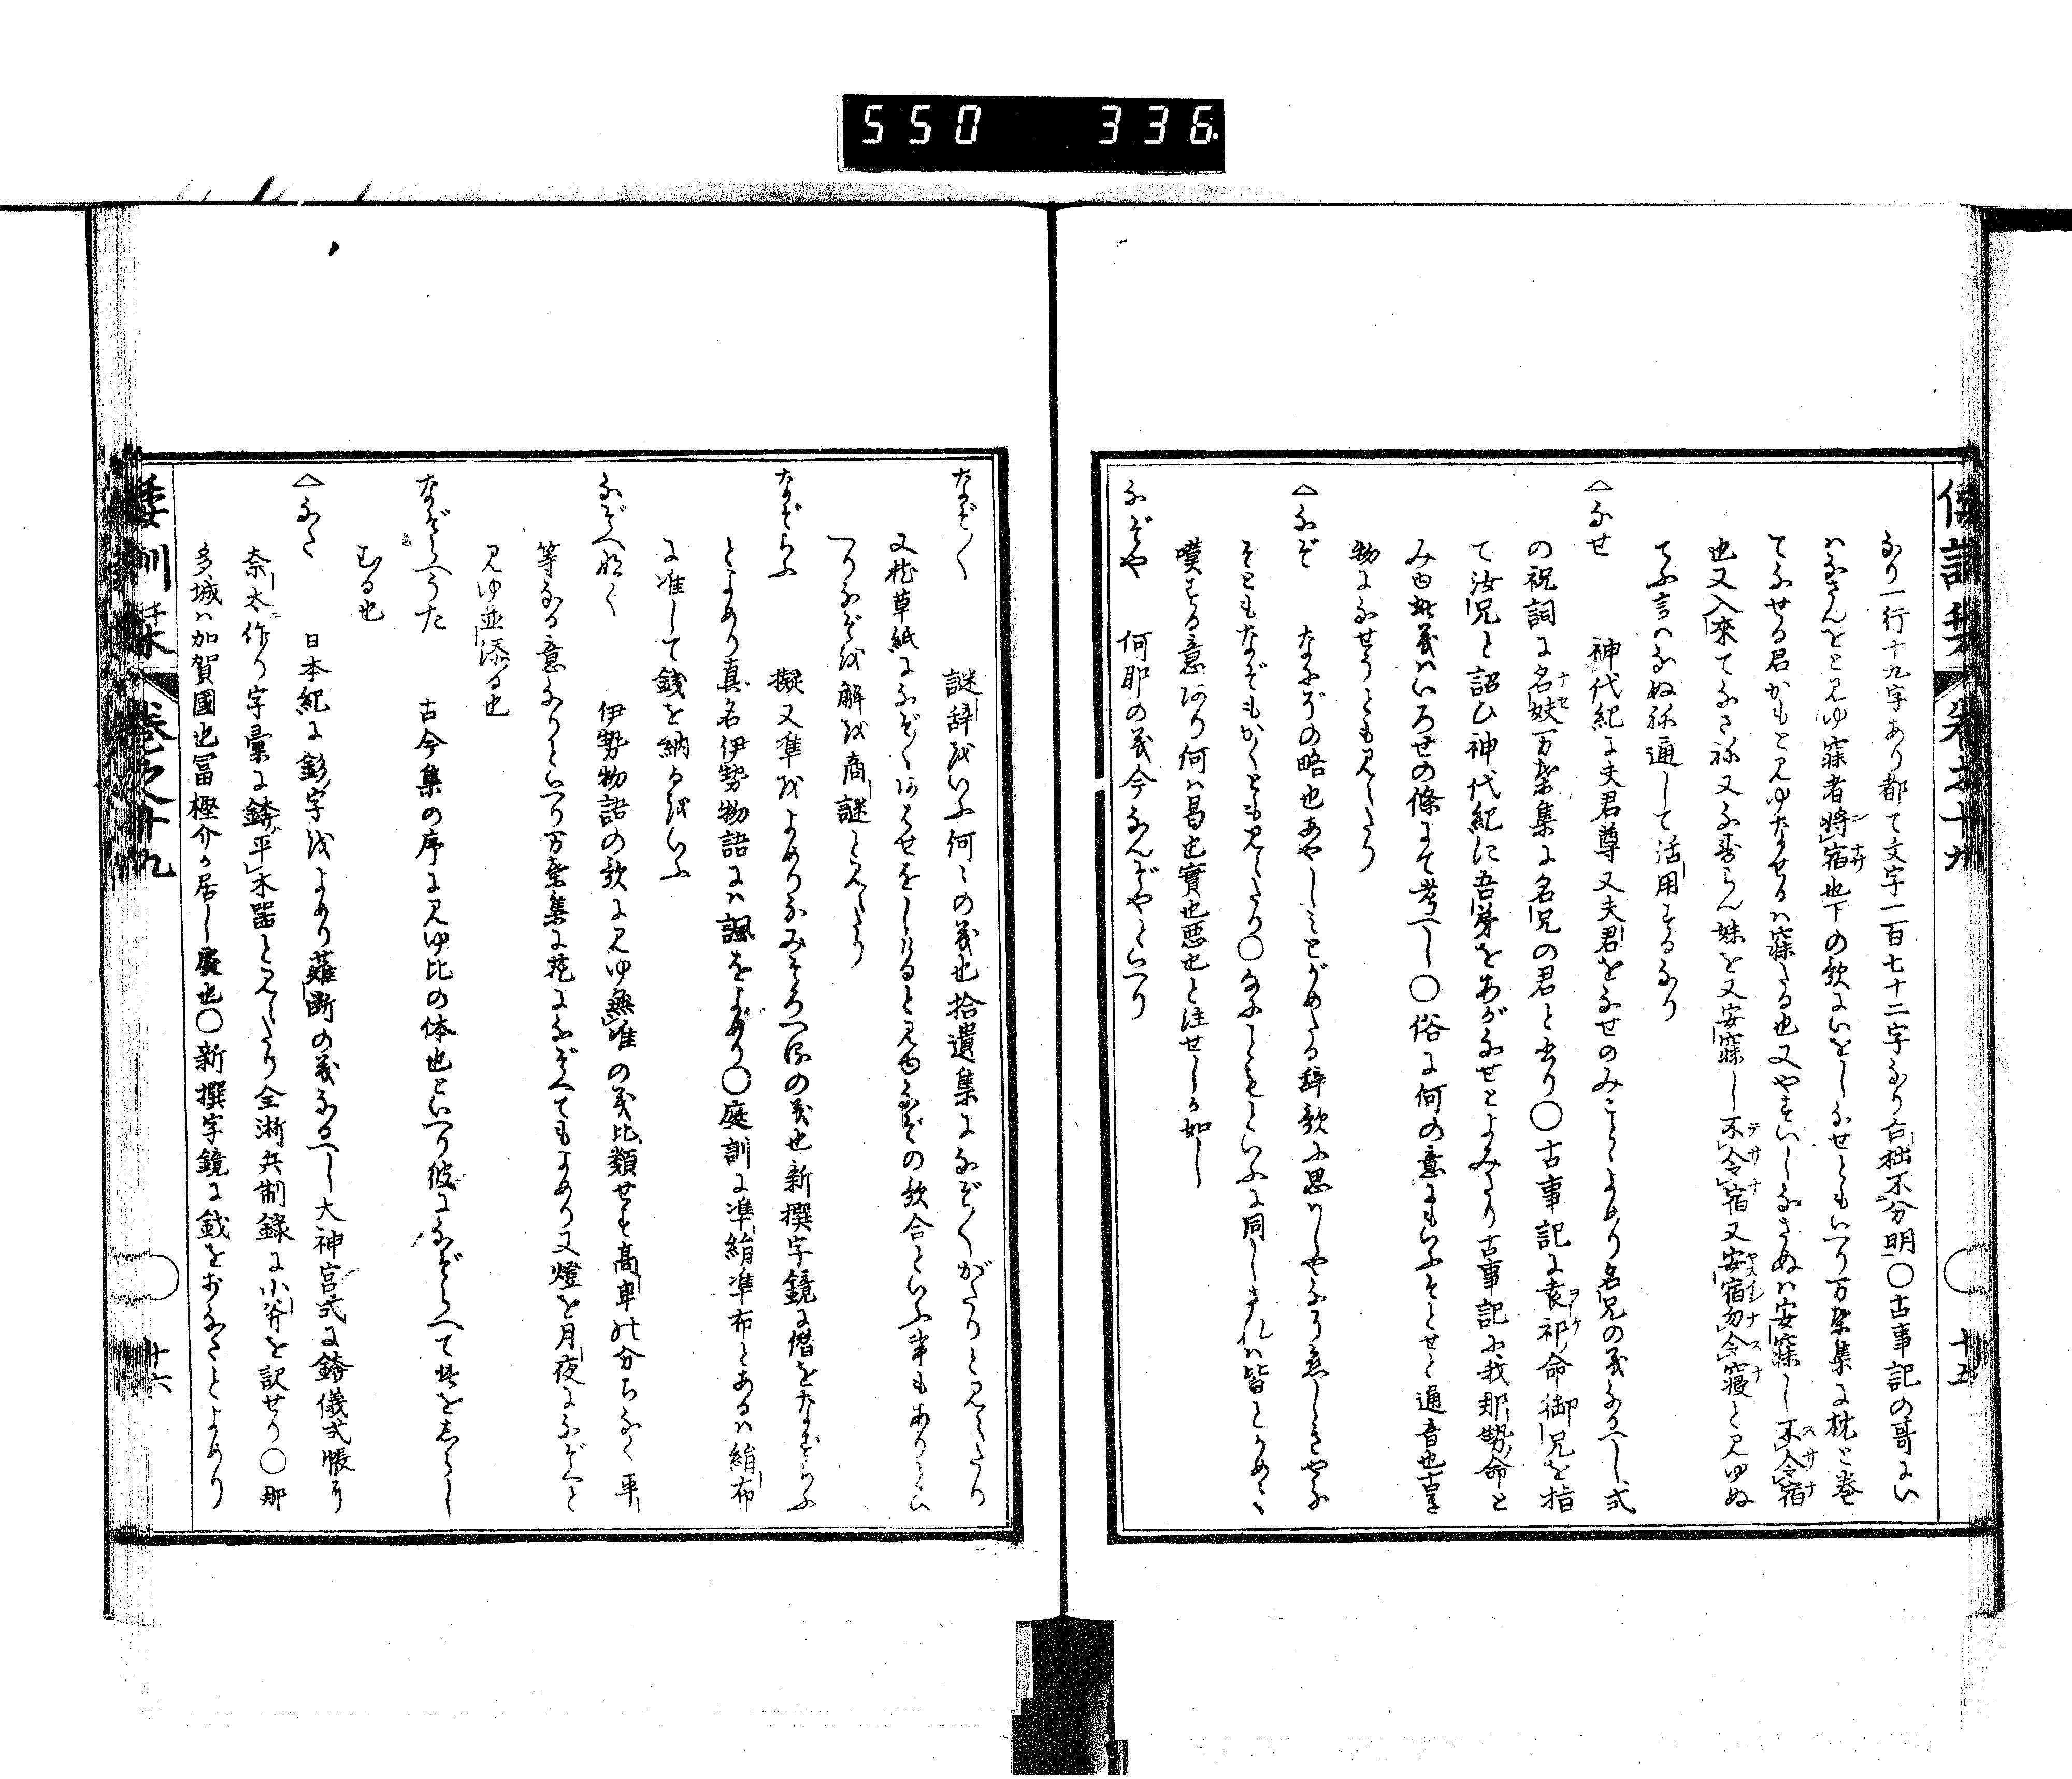 550 336
なり一行十九字あり都て文字一百七十二字なり古拙不分明○古事記の哥にい
ハなさんをと見ゆ寐者将宿也下の歌にいをしなせともいへり万葉集に枕と巻
てなせる君かもと見ゆなせるハ寐たる也又やすいしなさぬハ安寐し不令宿
也又入來てなさね又なすらん妹を又安寐し不令宿又安宿勿令寝と見ゆぬ
てふ言ハなぬね通して活用するなり
△なせ 神代紀に夫君尊又夫君をなせのみことよめり名兄の義なるへし式
の祝詞に名妋万葉集に名兄の君と出り○古事記に袁祁命御兄を指
て汝兄と詔ひ神代紀に吾弟をあがなせとよみたり古事記に我那勢命と
み由此義ハいろせの條にて考へし○俗に何の意にもいふそとせと通音也古き
物になせうとも見えたり
△なぞ なにぞの略也あやしミとがめたる辞歌に思ハしやなそ恋しきやな
そともなぞもかくとも見えたり○なにとをといふに同しされハ皆とかめて
嘆する意あり何ハ曷也實也悪也と注せしか如し
なぞや 何耶の義今なんぞやといへり
なぞ〱 謎辞をいふ何〻の義也拾遺集になぞ〱がたりと見えたり
又枕草紙になぞ〱あハせをしけると見由なぞの歌合といふ事もありとい
へりなぞを解を商謎と見えたり
なぞらふ 擬又準をよめりなみそろへるの義也新撰字鏡に僭をなぞらふ
とよめり真名伊勢物語にハ諷をよめり○庭訓に准絹准布とあるハ絹布
に准して銭を納るをいふ
なぞへなく 伊勢物語の歌に見ゆ無唯の義比類せす高卑の分ちなく平
等なる意なりといへり万葉集に花になぞへてもよめり又燈を月夜になぞへと
見ゆ並添る也
なぞらへうた 古今集の序に見ゆ比の体也といへり彼になぞらへて此をしらし
むる也
△なた 日本紀に釤字をよめり薙断の義なるへし大神宮式に鉾儀式帳に
奈太作り字彙に鉾平木器と見えたり全淅兵制録に小斧を訳せり○那
多城ハ加賀國也冨樫介か居し處也○新撰字鏡に鉞をおなたとよめり
倭訓栞 巻之十九 十五
倭訓栞 巻之十九 十六